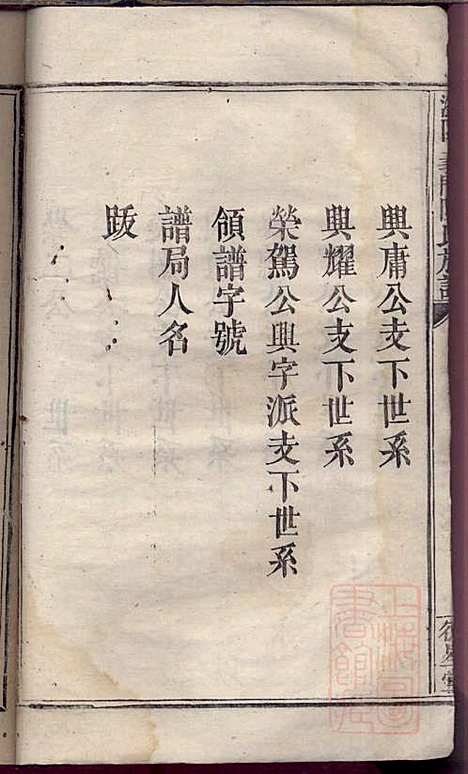 興庸公支下世系
興耀公支下世系
榮駕公興字派支下世系
領譜字號
譜局人名
跋